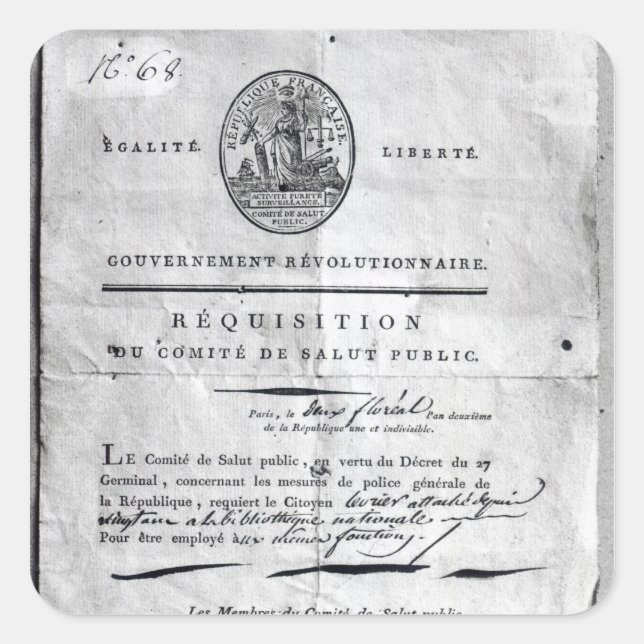 N.º 68.
RÉPUBLIQUE FRANÇAISE.
ÉGALITÉ. LIBERTÉ.
ACTIVITÉ PURETÉ
SURVEILLANCE.
COMITÉ DE SALUT
PUBLIC.
GOUVERNEMENT RÉVOLUTIONNAIRE.
RÉQUISITION
DU COMITÉ DE SALUT PUBLIC.
Paris, le deux floréal l'an deuxième
de la République une et indivisible.
LE Comité de Salut public, en vertu du Décret du 27
Germinal, concernant les mesures de police générale de
la République, requiert le Citoyen attaché depuis
vingt ans a la bibliothèque nationale
Pour être employé aux mêmes fonctions.
Les Membres du Comité de Salut public